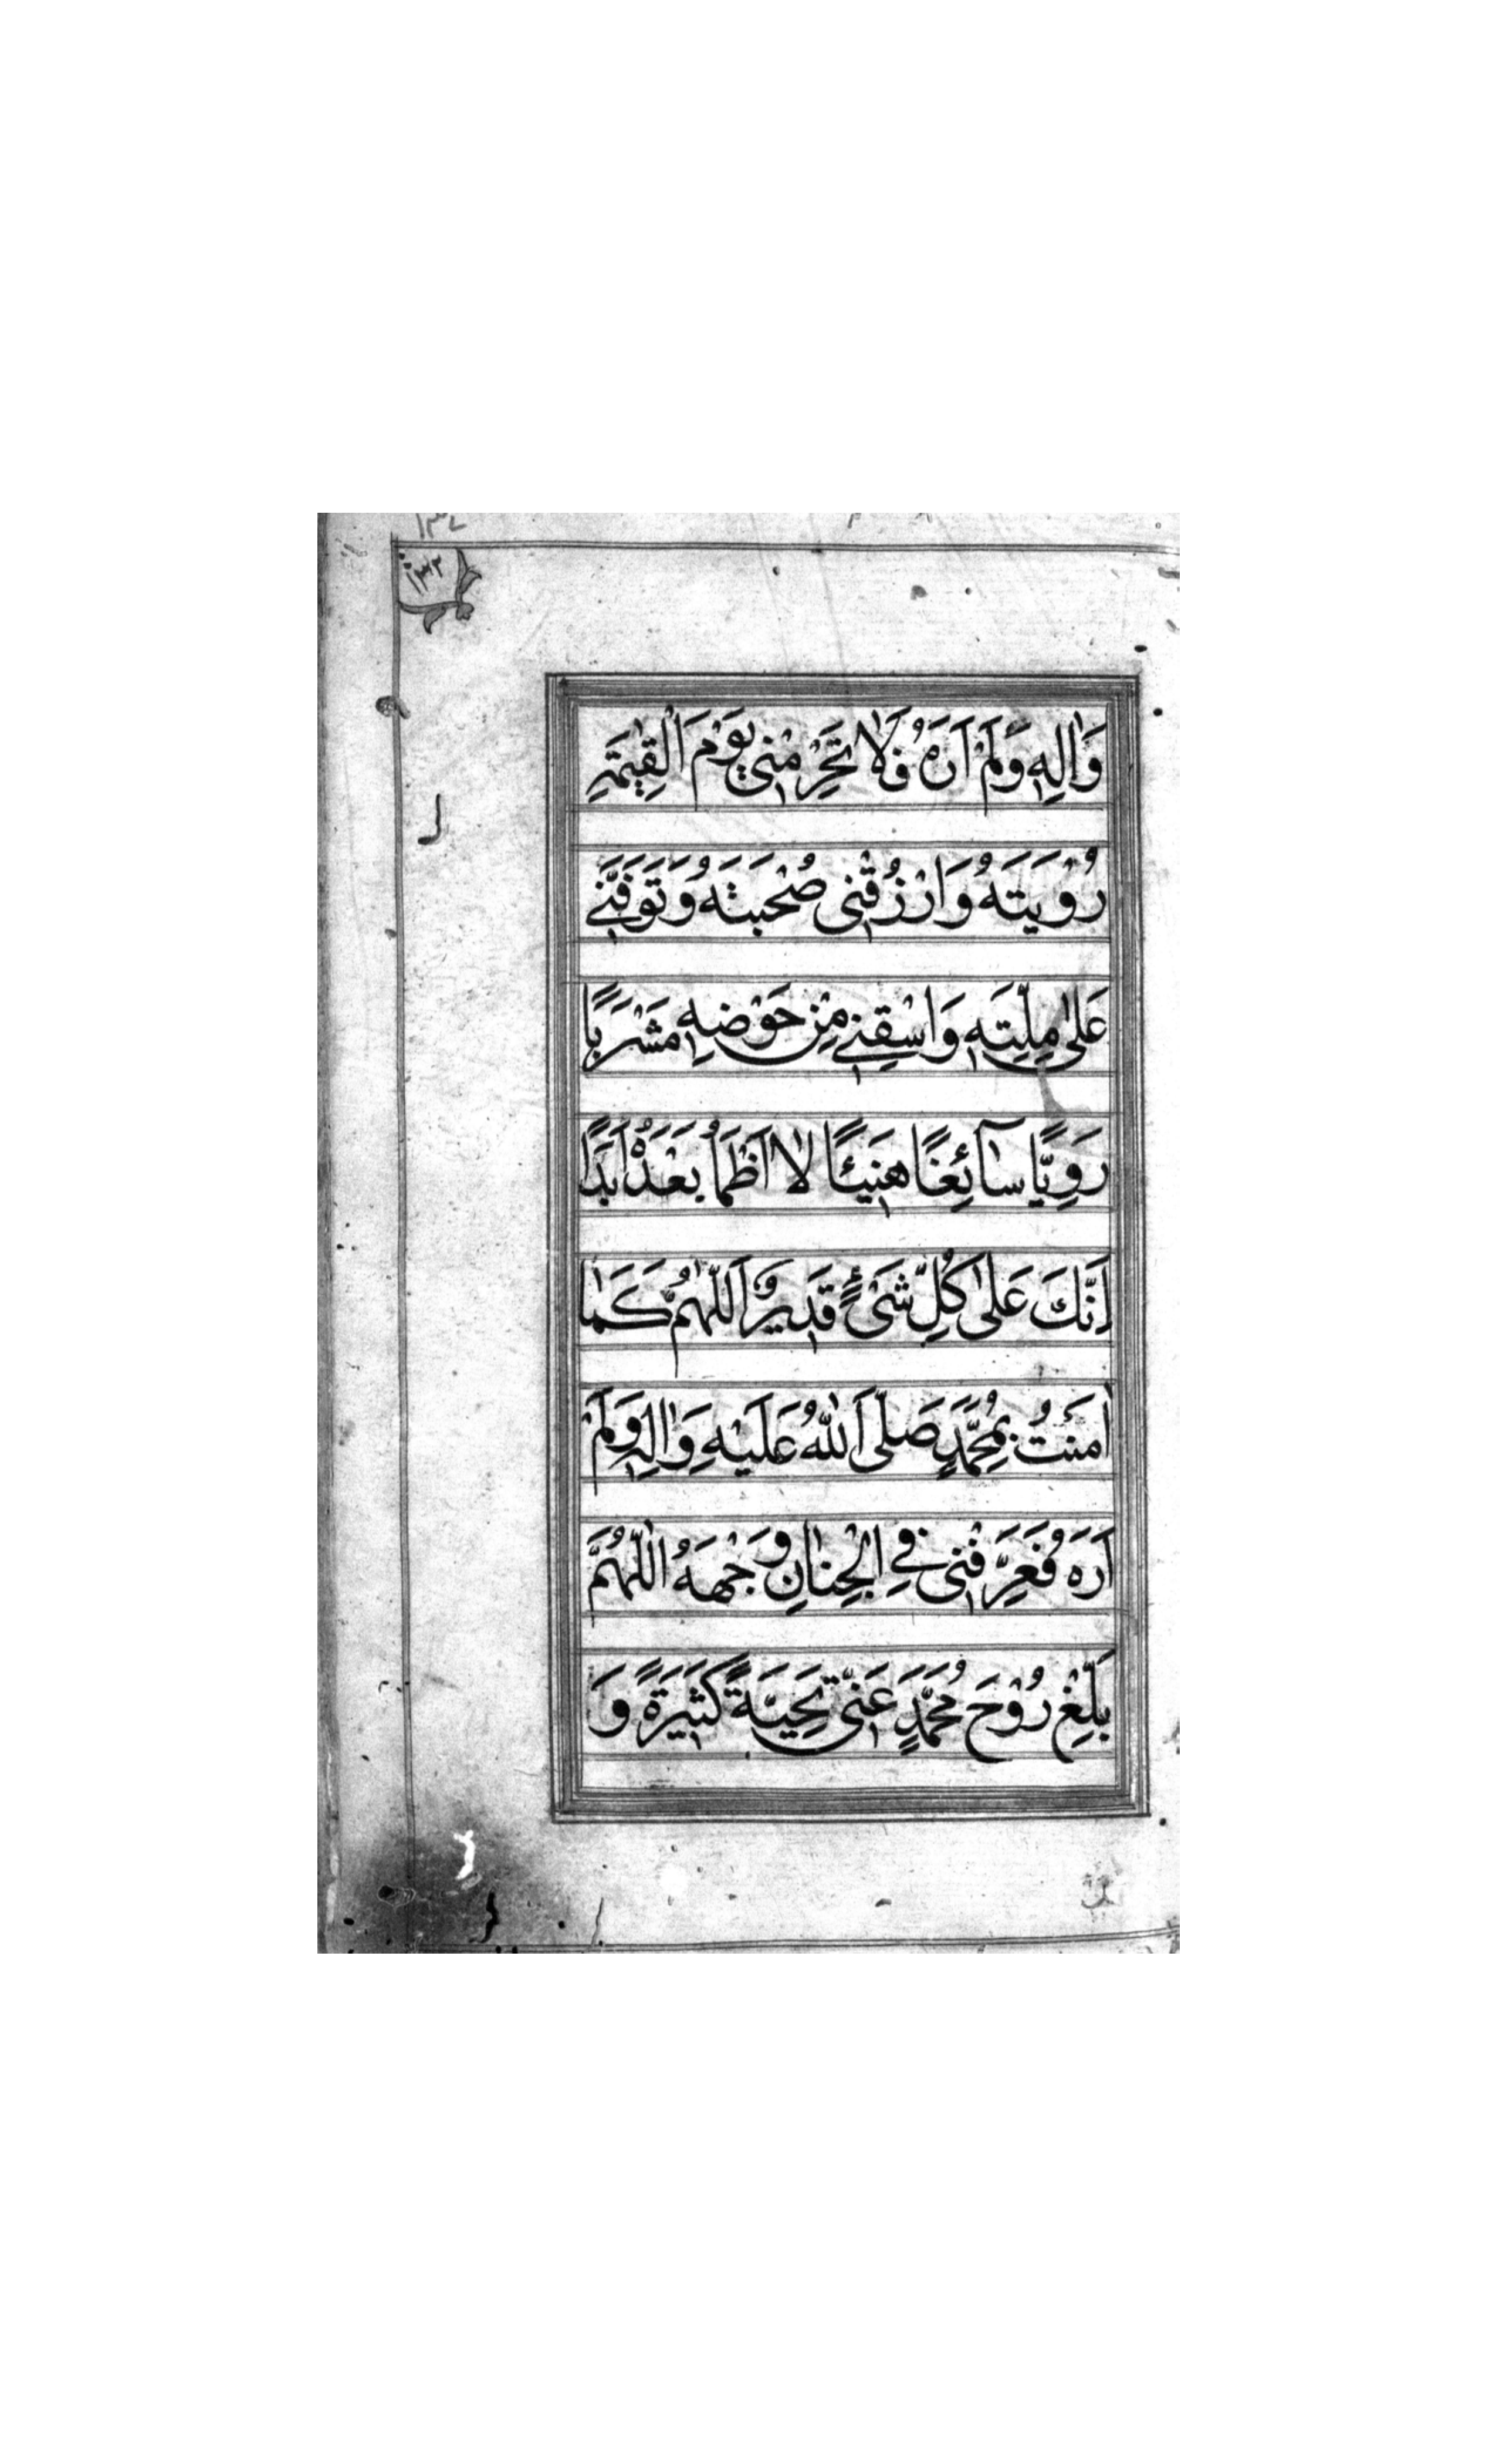 ١٣٣
وَاٰلِهٖ وَلَمْ اَرَهُ فَلَا تَحْرِمْنِی یَوْمَ الْقِیٰمَةِ
رُوْیَتَهُ وَارْزُقْنِی صُحْبَتَهُ وَتَوَفَّنِی
عَلٰی مِلَّتِهٖ وَاسْقِنِی مِنْ حَوْضِهِ مَشْرَبًا
رَوِیًّا سَآئِغًا هَنِیْئًا لَا اَظْمَأُ بَعْدَهُ اَبَدًا
اِنَّكَ عَلٰی كُلِّ شَیْءٍ قَدِیْرٌ اَللّٰهُمَّ كَمَا
اٰمَنْتُ بِمُحَمَّدٍ صَلَّی اللّٰهُ عَلَیْهِ وَاٰلِهٖ وَلَمْ
اَرَهُ فَعَرِّفْنِی فِی الْجِنَانِ وَجْهَهُ اَللّٰهُمَّ
بَلِّغْ رُوْحَ مُحَمَّدٍ عَنِّی تَحِیَّةً كَثِیْرَةً وَ